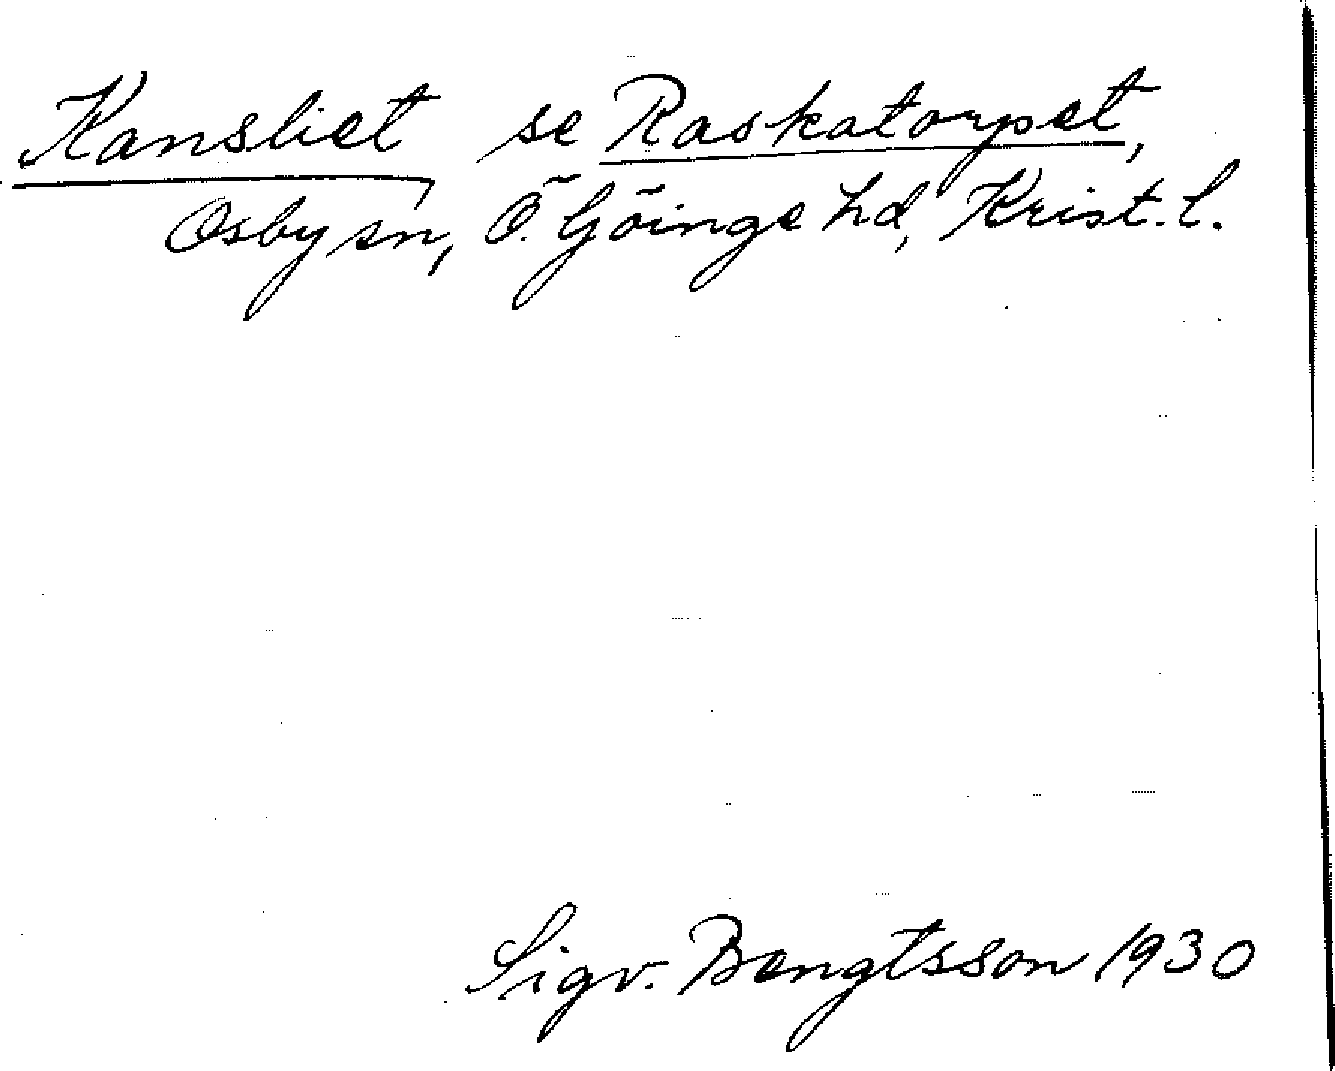 Kansliet se Raskatorpet,
Osby sn, Ö. Göinge hd, Krist. l.
Sigv. Bengtsson 1930